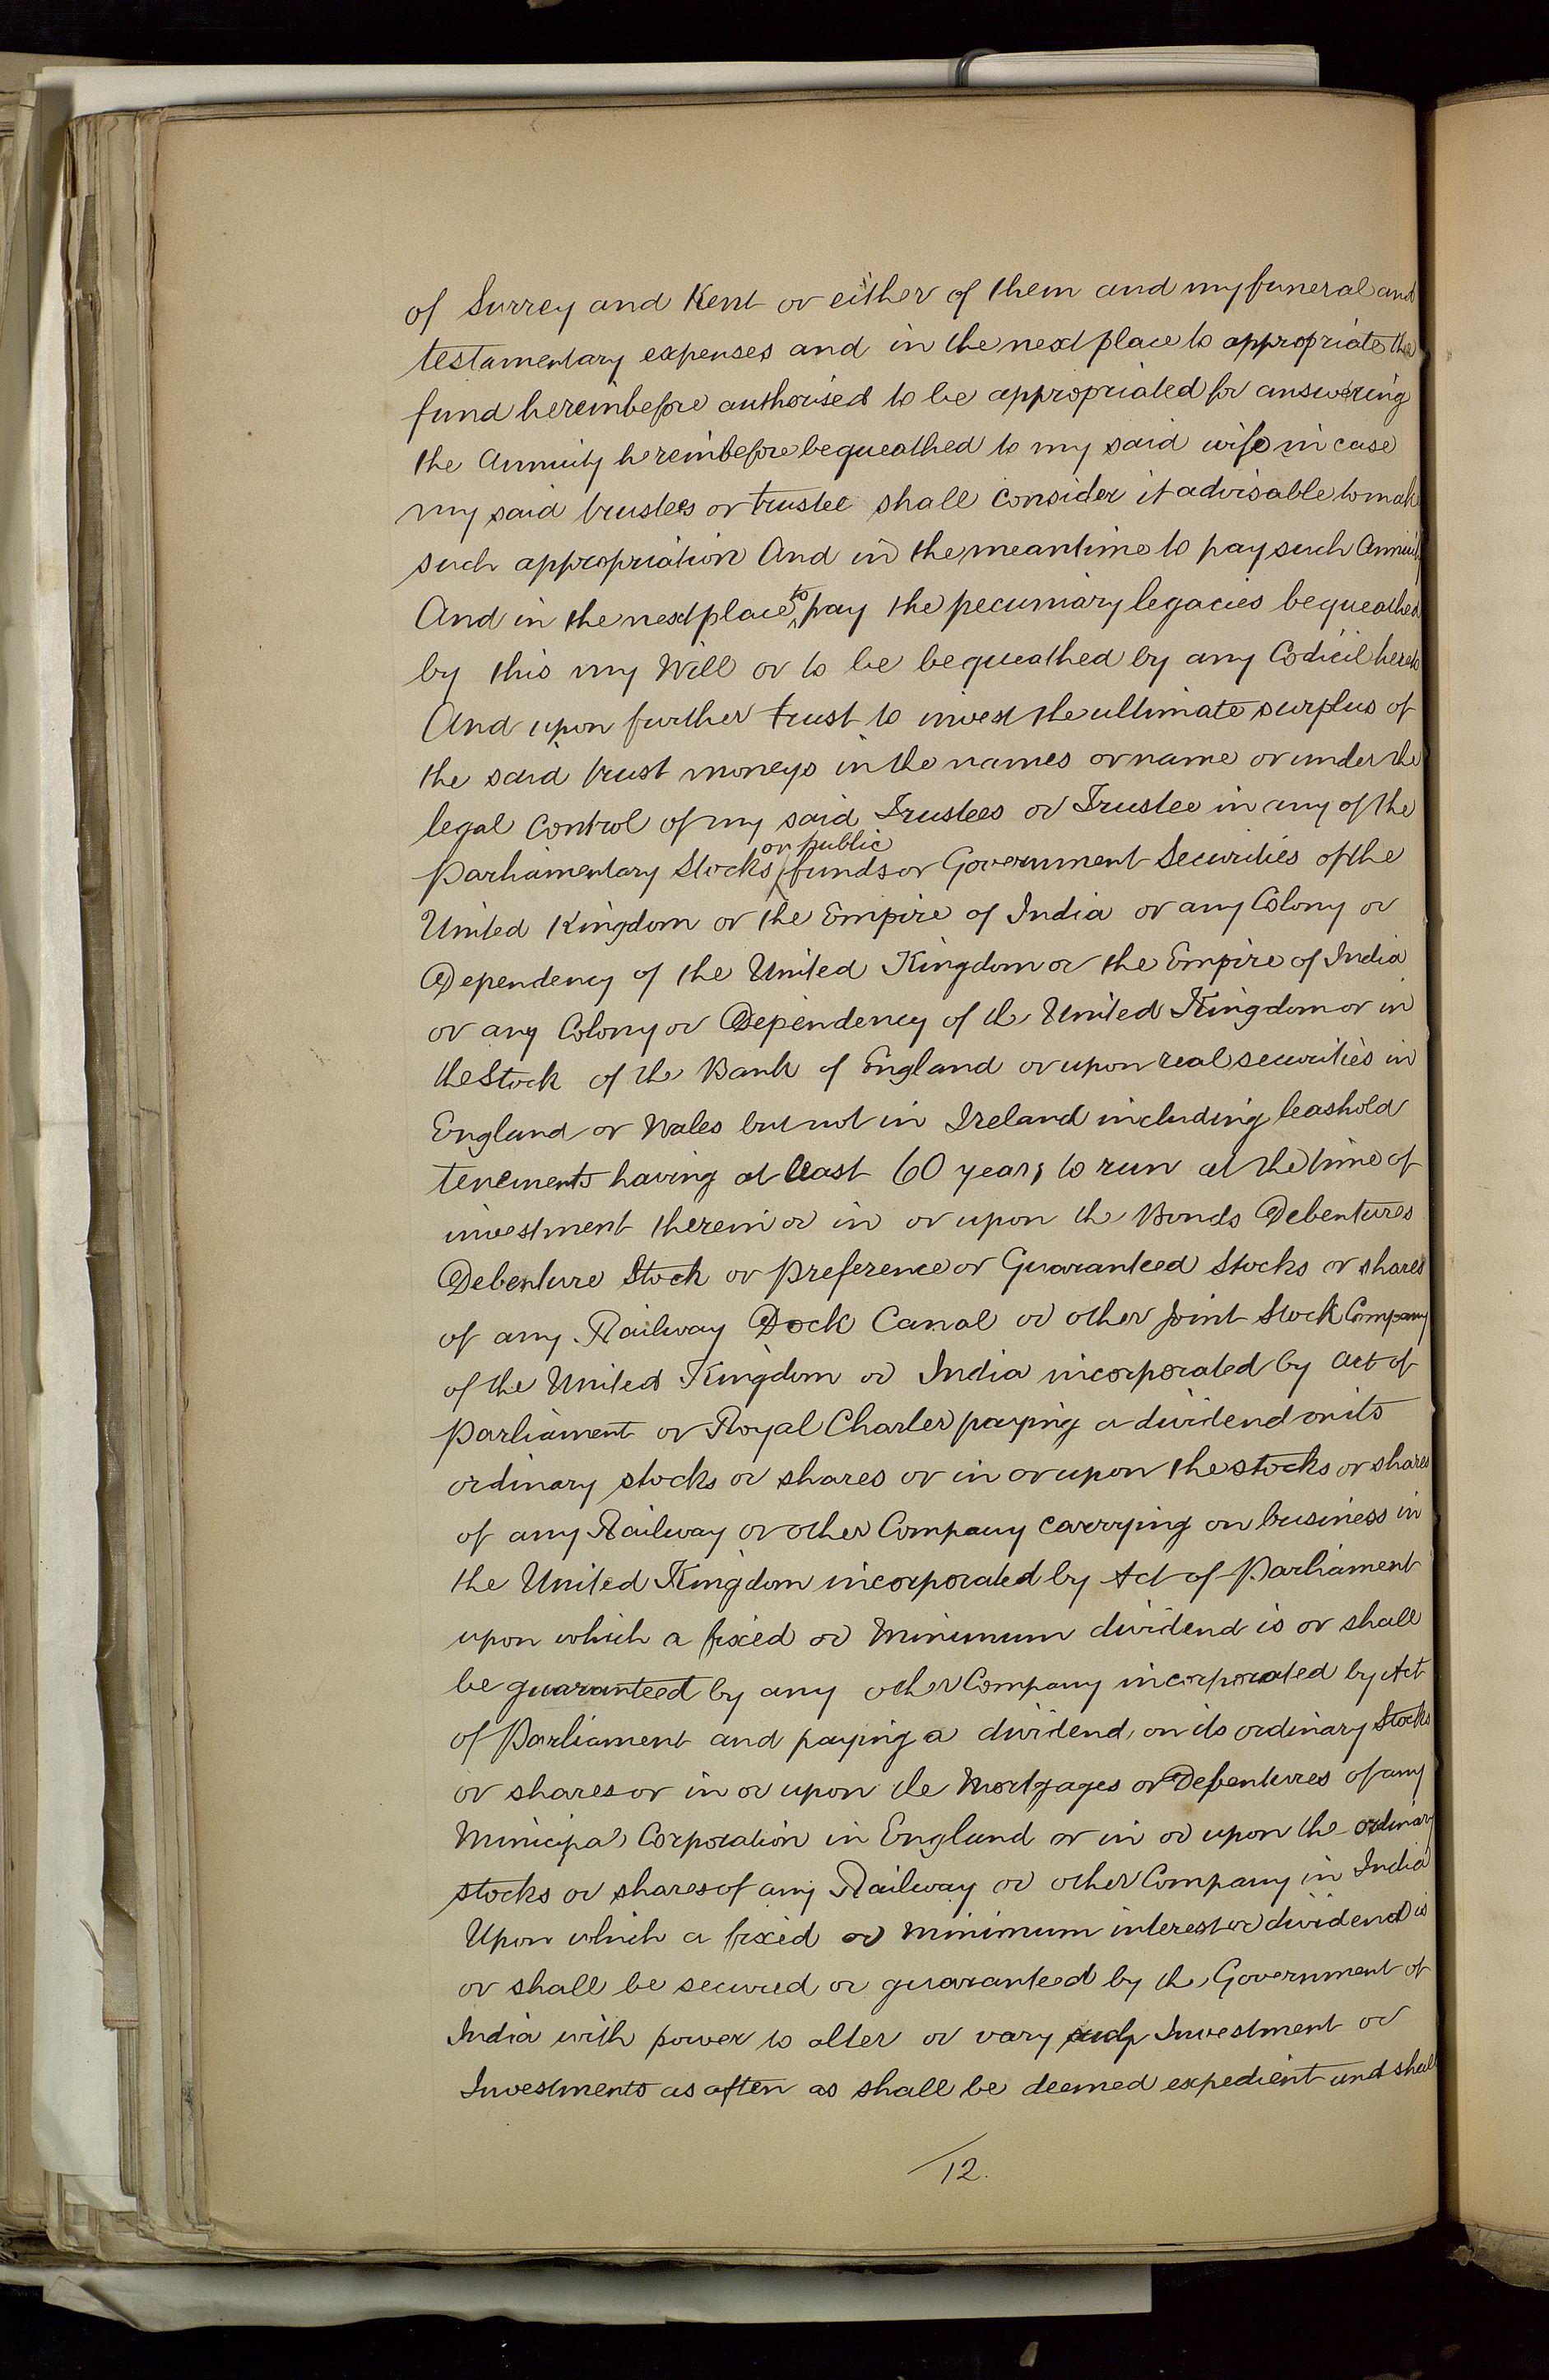 of Surrey and Kent or either of them and my funeral and
testamentary expenses and in the next place to appropriate the
fund hereinbefore authorised to be appropriated for answering
the Annuity hereinbefore bequeathed to my said wife in case
my said trustees or trustee shall consider it advisable to make
such appropriation And in the meantime to pay such Annuity
And in the next place to pay the pecuniary legacies bequeathed
by this my Will or to be bequeathed by any Codicil hereto
And upon further trust to invest the ultimate surplus of
the said trust moneys in the names or name or under the
legal Control of my said Trustees or Trustee in any of the
Parliamentary Stocks or public funds or Government Securities of the
United Kingdom or the Empire of India or any Colony or
Dependency of the United Kingdom or the Empire of India
or any Colony or Dependency of the United Kingdom or in
the Stock of the Bank of England or upon real securities in
England or Wales but not in Ireland including leashold
tenements having at least 60 years to run at the time of
investment therein or in or upon the Bonds Debentures
Debenture Stock or Preference or Guaranteed Stocks or shares
of any Railway Dock Canal or other Joint Stock Company
of the United Kingdom or India incorporated by Act of
Parliament or Royal Charter paying a dividend on its
ordinary stocks or shares or in or upon the stocks or shares
of any Railway or other Company carrying on business in
the United Kingdom incorporated by Act of Parliament
upon which a fixed or Minimum dividend is or shall
be guaranteed by any other Company incorporated by Act
of Parliament and paying a dividend on its ordinary Stocks
or shares or in or upon the Mortgages or Debentures of any
Municipal Corporation in England or in or upon the ordinary
stocks or shares of any Railway or other Company in India
Upon which a fixed or minimum interest or dividend is
or shall be secured or guaranteed by the Government of
India with power to alter or vary such Investment or
Investments as often as shall be deemed expedient and shall
12.